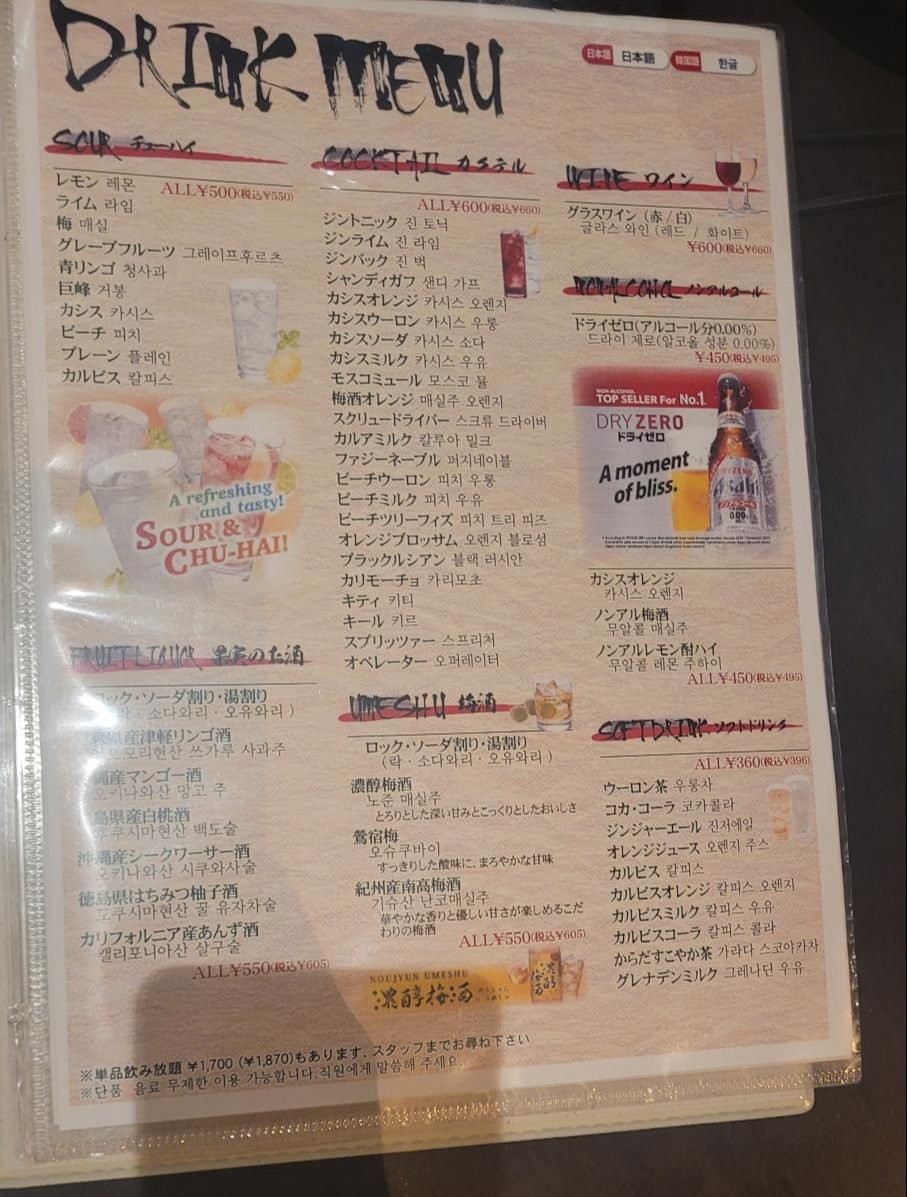 DRINK MENU
日本語 日本語 韓国語 한글
SOUR チューハイ
ALL¥500(税込¥550)
レモン 레몬
ライム 라임
梅 매실
グレープフルーツ 그레이프후르츠
青リンゴ 청사과
巨峰 거봉
カシス 카시스
ピーチ 피치
プレーン 플레인
カルピス 칼피스
A refreshing
and tasty!
SOUR &
CHU-HAI!
FRUIT LIQUOR 果実のお酒
ロック・ソーダ割り・湯割り
락 · 소다와리 · 오유와리 )
県産津軽リンゴ酒
모리현산 쓰가루 사과주
縄産マンゴー酒
오키나와산 망고 주
島県産白桃酒
쿠시마현산 백도술
沖縄産シークワーサー酒
오키나와산 시쿠와사술
徳島県はちみつ柚子酒
도쿠시마현산 꿀 유자차술
カリフォルニア産あんず酒
캘리포니아산 살구술
ALL¥550(税込¥605)
COCKTAIL カクテル
ALL¥600(税込¥660)
ジントニック 진 토닉
ジンライム 진 라임
ジンバック 진 벅
シャンディガフ 샌디 가프
カシスオレンジ 카시스 오렌지
カシスウーロン 카시스 우롱
カシスソーダ 카시스 소다
カシスミルク 카시스 우유
モスコミュール 모스코 뮬
梅酒オレンジ 매실주 오렌지
スクリュードライバー 스크류 드라이버
カルアミルク 칼루아 밀크
ファジーネーブル 퍼지네이블
ピーチウーロン 피치 우롱
ピーチミルク 피치 우유
ピーチツリーフィズ 피치 트리 피즈
オレンジブロッサム 오렌지 블로섬
ブラックルシアン 블랙 러시안
カリモーチョ 카리모초
キティ 키티
キール 키르
スプリッツァー 스프리처
オペレーター 오퍼레이터
UMESHU 梅酒
ロック・ソーダ割り・湯割り
(락 · 소다와리 · 오유와리 )
濃醇梅酒
노준 매실주
とろりとした深い甘みとこっくりとしたおいしさ
鶯宿梅
오슈쿠바이
すっきりした酸味に、まろやかな甘味
紀州産南高梅酒
기슈산 난코매실주
華やかな香りと優しい甘さが楽しめるこだ
わりの梅酒
ALL¥550(税込¥605)
NOUJYUN UMESHU
濃醇梅酒
WINE ワイン
グラスワイン (赤 / 白)
글라스 와인 (레드 / 화이트)
¥600(税込¥660)
NON-ALCOHOL ノンアルコール
ドライゼロ(アルコール分0.00%)
드라이 제로(알코올 성분 0.00%)
¥450(税込¥495)
NON-ALCOHOL
TOP SELLER For No.1
DRYZERO
ドライゼロ
A moment
of bliss.
DRYZERO
Asahi
ノンアルコール
0.00%
カシスオレンジ
카시스 오렌지
ノンアル梅酒
무알콜 매실주
ノンアルレモン酎ハイ
무알콜 레몬 주하이
ALL¥450(税込¥495)
SOFT DRINK ソフトドリンク
ALL¥360(税込¥396)
ウーロン茶 우롱차
コカ・コーラ 코카콜라
ジンジャーエール 진저에일
オレンジジュース 오렌지 주스
カルピス 칼피스
カルピスオレンジ 칼피스 오렌지
カルピスミルク 칼피스 우유
カルピスコーラ 칼피스 콜라
からだすこやか茶 가라다 스코야카차
グレナデンミルク 그레나딘 우유
※単品飲み放題 ¥1,700 (¥1,870)もあります、スタッフまでお尋ね下さい
※단품 음료 무제한 이용 가능합니다.직원에게 말씀해 주세요.